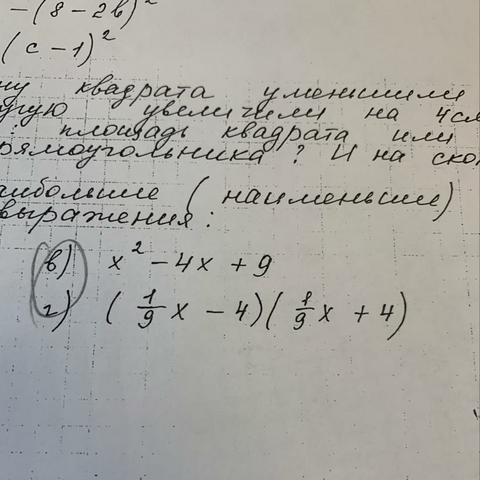 - (8 - 2в)²
(с - 1)²
квадрата уменьшили
увеличили на 4см
площадь квадрата или
рямоугольника? И на ско
аибольшие (наименьшие)
выражения:
в) x² - 4x + 9
г) (1/9 x - 4)(1/9 x + 4)